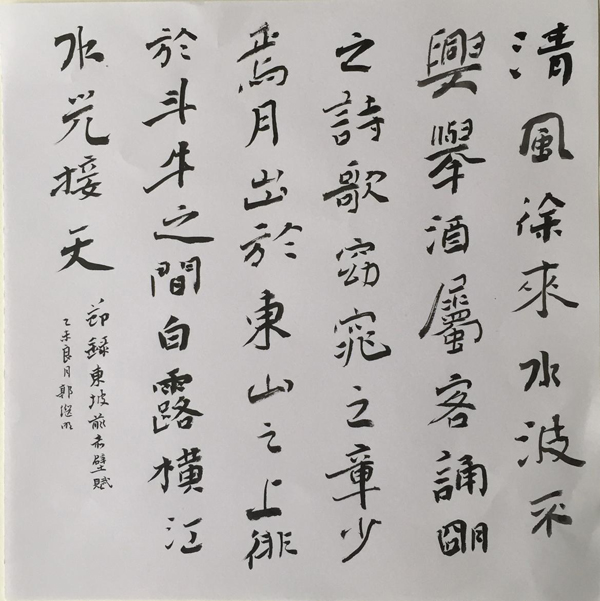 清風徐來水波不
興舉酒屬客誦朙
之詩歌窈窕之章少
焉月出於東山之上徘
於斗牛之間白露橫江
水光接天
節錄東坡前赤壁賦
乙未良月郭